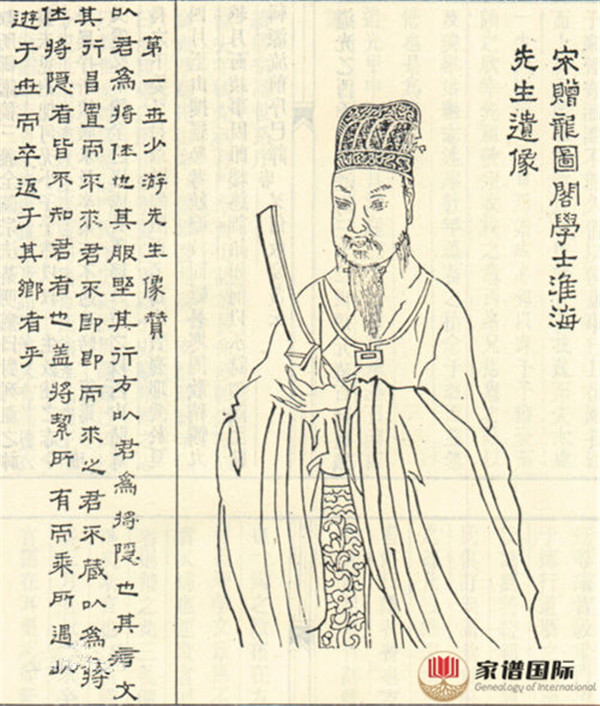 宋贈龍圖閣學士淮海
先生遺像
第一世少游先生像贊
以君為將仕也其服埜其行方以君為將隱也其言文
其行昌置而不求君不即即而求之君不藏以為將
仕將隱者皆不知君者也蓋將挈所有而乘所遇以
遊于世而卒返于其鄉者乎
家谱国际
Genealogy of International